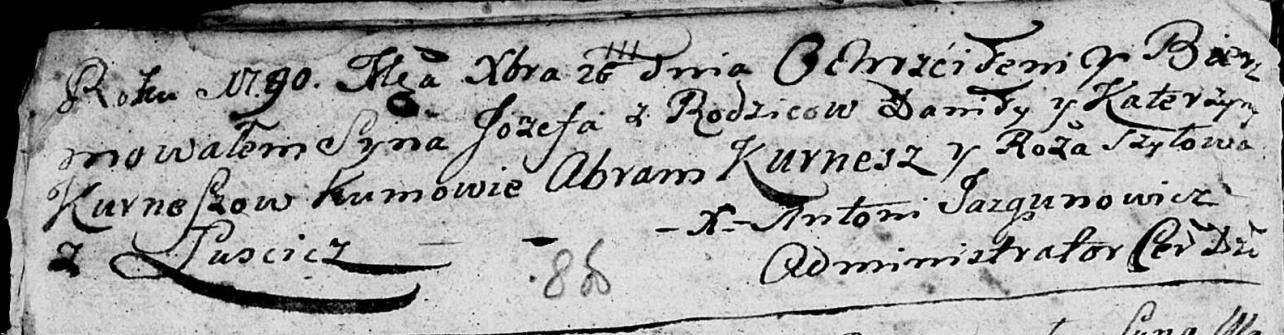 Roku 1790. Mca Xbra 26 dnia Ochrzciłem y Bierz
mowałem Syna Jozefa z Rodzicow Daniły y Katerzyny
Kurneszow kumowie Abram Kurnesz y Roża Szyłowa
z Luscicz — — -X- Antoni Jazgunowicz
86 Administrator Cer
Syna